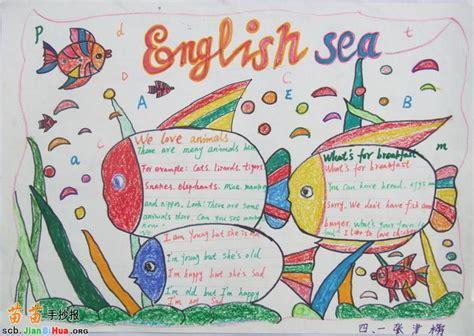 English sea
P
d
t
A
C
E
B
a
c
m
We love animals
There are many animals here
For example: Cats. lizards. tigers
Snakes. elephants. Mice. monkey
and hippos. Look! There are some
animals there. Can you see
What's for breakfast
What's for breakfast
You can have bread. eggs
Sorry. We don't have fish
burger. What's your
but I like to
I am Young but she's old
I'm young but she's old
I'm happy but she's Sad
I'm old but I'm happy
I'm not sad
四.一 张津
苗苗手抄报
scb.JianBiHua.ORG